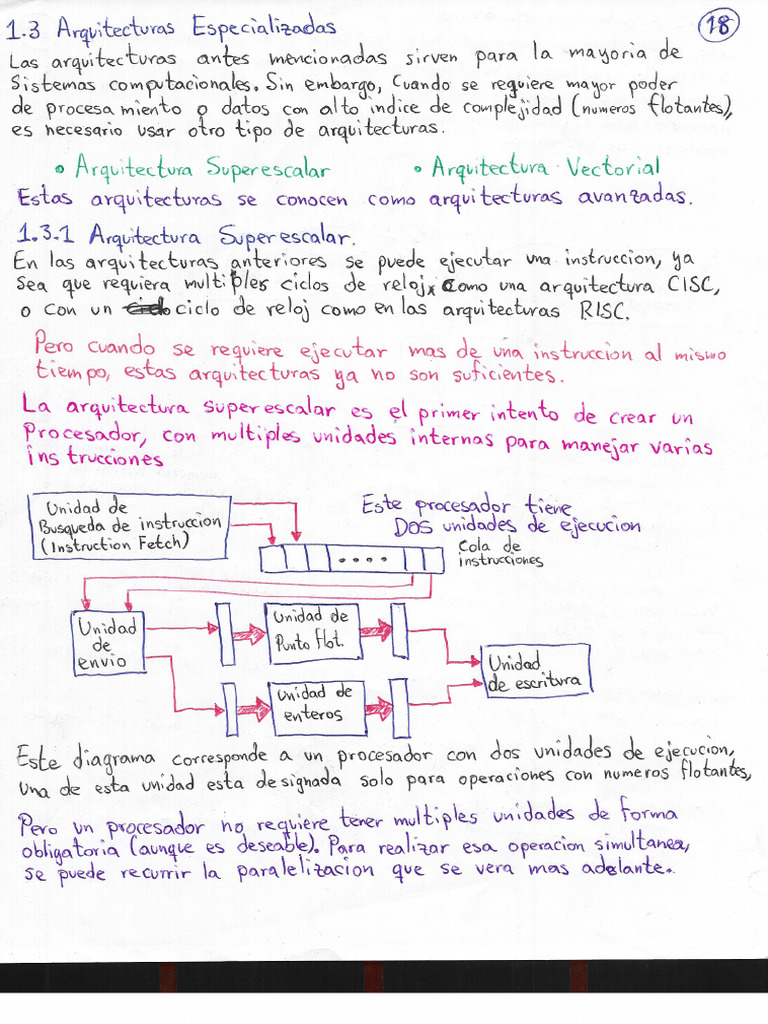 18
1.3 Arquitecturas Especializadas
Las arquitecturas antes mencionadas sirven para la mayoria de
Sistemas computacionales. Sin embargo, Cuando se requiere mayor poder
de procesamiento o datos con alto indice de complejidad (numeros flotantes),
es necesario usar otro tipo de arquitecturas.
• Arquitectura Superescalar • Arquitectura Vectorial
Estas arquitecturas se conocen como arquitecturas avanzadas.
1.3.1 Arquitectura Superescalar.
En las arquitecturas anteriores se puede ejecutar una instruccion, ya
Sea que requiera multiples ciclos de reloj, Como una arquitectura CISC,
o con un ciclo de reloj como en las arquitecturas RISC.
Pero cuando se requiere ejecutar mas de una instruccion al mismo
tiempo, estas arquitecturas ya no son suficientes.
La arquitectura superescalar es el primer intento de crear un
Procesador, con multiples unidades internas para manejar varias
instrucciones
Unidad de
Busqueda de instruccion
(Instruction Fetch)
Este procesador tiene
DOS unidades de ejecucion
Cola de
instrucciones
Unidad
de
envio
Unidad de
Punto flot.
Unidad de
enteros
Unidad
de escritura
Este diagrama corresponde a un procesador con dos unidades de ejecucion,
Una de esta unidad esta designada solo para operaciones con numeros flotantes,
Pero un procesador no requiere tener multiples unidades de forma
obligatoria (aunque es deseable). Para realizar esa operacion simultanea,
se puede recurrir la paralelizacion que se vera mas adelante.